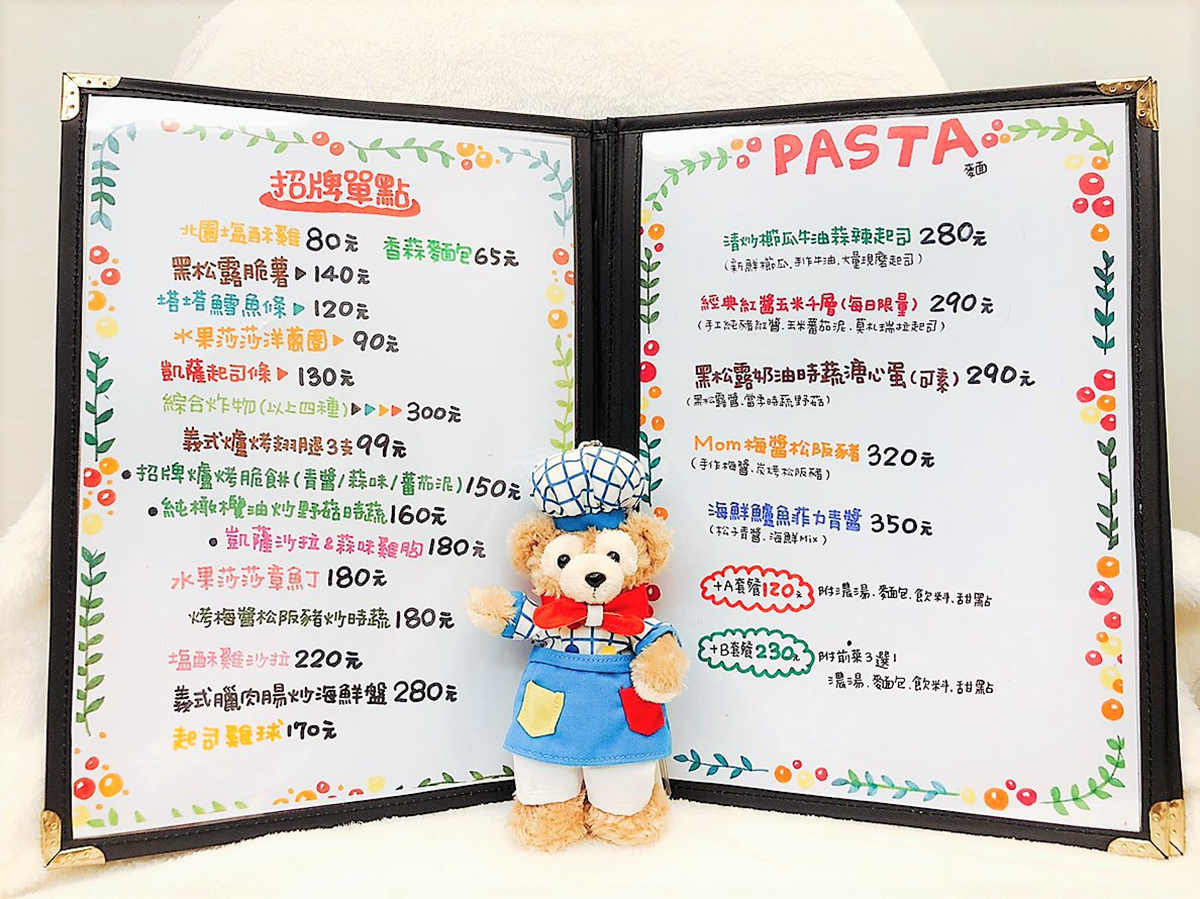 招牌單點
北園塩酥雞 80元 香蒜麵包 65元
黑松露脆薯▶140元
塔塔鱈魚條▶120元
水果莎莎洋蔥圈▶90元
凱薩起司條▶130元
綜合炸物(以上四種)▶▶▶▶300元
義式爐烤翅腿3支 99元
•招牌爐烤脆餅(青醬/蒜味/蕃茄泥)150元
•純橄欖油炒野菇時蔬160元
•凱薩沙拉&蒜味雞胸180元
水果莎莎章魚丁180元
烤梅醬松阪豬炒時蔬180元
塩酥雞沙拉220元
義式臘肉腸炒海鮮盤280元
起司雞球170元
PASTA
麵
清炒櫛瓜牛油蒜辣起司 280元
(新鮮櫛瓜.手作牛油.大量現磨起司)
經典紅醬玉米千層(每日限量) 290元
(手工純豬紅醬.玉米蕃茄泥.莫札瑞拉起司)
黑松露奶油時蔬溏心蛋(可素)290元
(黑松露醬.當季時蔬野菇)
Mom梅醬松阪豬 320元
(手作梅醬.炭烤松阪豬)
海鮮鱸魚菲力青醬 350元
(松子青醬.海鮮Mix)
+A套餐120元 附濃湯.麵包.飲料.甜點
+B套餐230元 附前菜3選1
濃湯.麵包.飲料.甜點